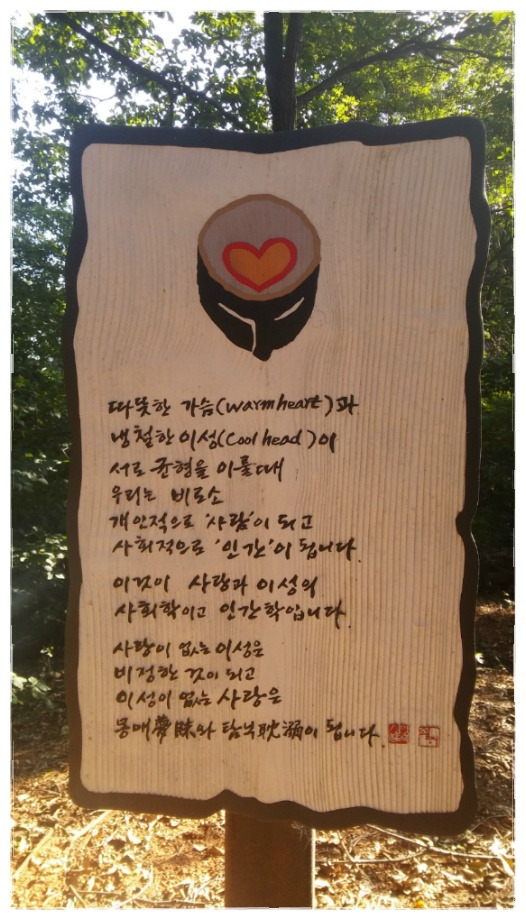 따뜻한 가슴(warm heart)과
냉철한 이성(Cool head)이
서로 균형을 이룰 때
우리는 비로소
개인적으로 '사람'이 되고
사회적으로 '인간'이 됩니다.
이것이 사랑과 이성의
사회학이고 인간학입니다.
사랑이 없는 이성은
비정한 것이 되고
이성이 없는 사랑은
몽매夢昧와 탐닉耽溺이 됩니다.